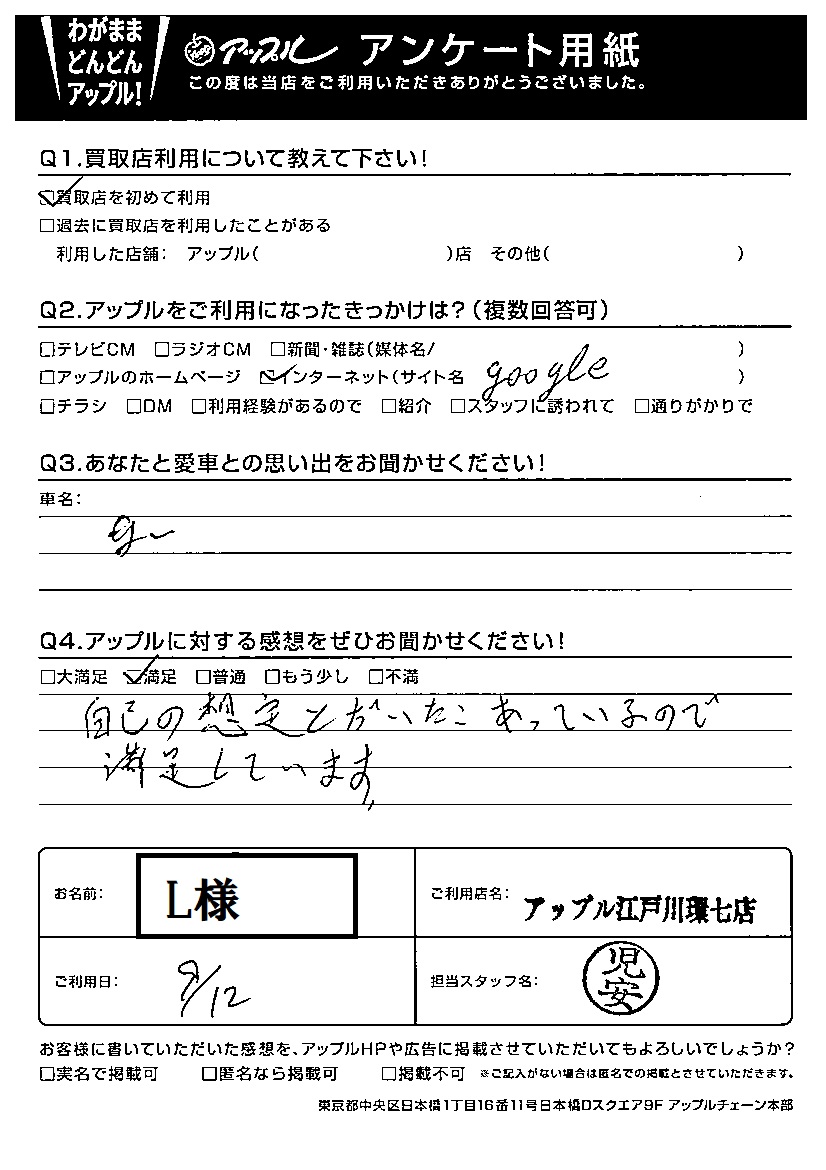 わがまま
どんどん
アップル!
アップル アンケート用紙
この度は当店をご利用いただきありがとうございました。
Q1.買取店利用について教えて下さい!
☑買取店を初めて利用
□過去に買取店を利用したことがある
利用した店舗: アップル( )店 その他( )
Q2.アップルをご利用になったきっかけは?(複数回答可)
□テレビCM □ラジオCM □新聞・雑誌(媒体名/ )
□アップルのホームページ ☑インターネット(サイト名 google )
□チラシ □DM □利用経験があるので □紹介 □スタッフに誘われて □通りがかりで
Q3.あなたと愛車との思い出をお聞かせください!
車名:
Q4.アップルに対する感想をぜひお聞かせください!
□大満足 ☑満足 □普通 □もう少し □不満
自己の想定とだいたいあっているので
満足しています。
お名前: L様
ご利用店名: アップル江戸川環七店
ご利用日: 9/12
担当スタッフ名: 児安
お客様に書いていただいた感想を、アップルHPや広告に掲載させていただいてもよろしいでしょうか?
□実名で掲載可 □匿名なら掲載可 □掲載不可 ※ご記入がない場合は匿名での掲載とさせていただきます。
東京都中央区日本橋1丁目16番11号日本橋Dスクエア9F アップルチェーン本部